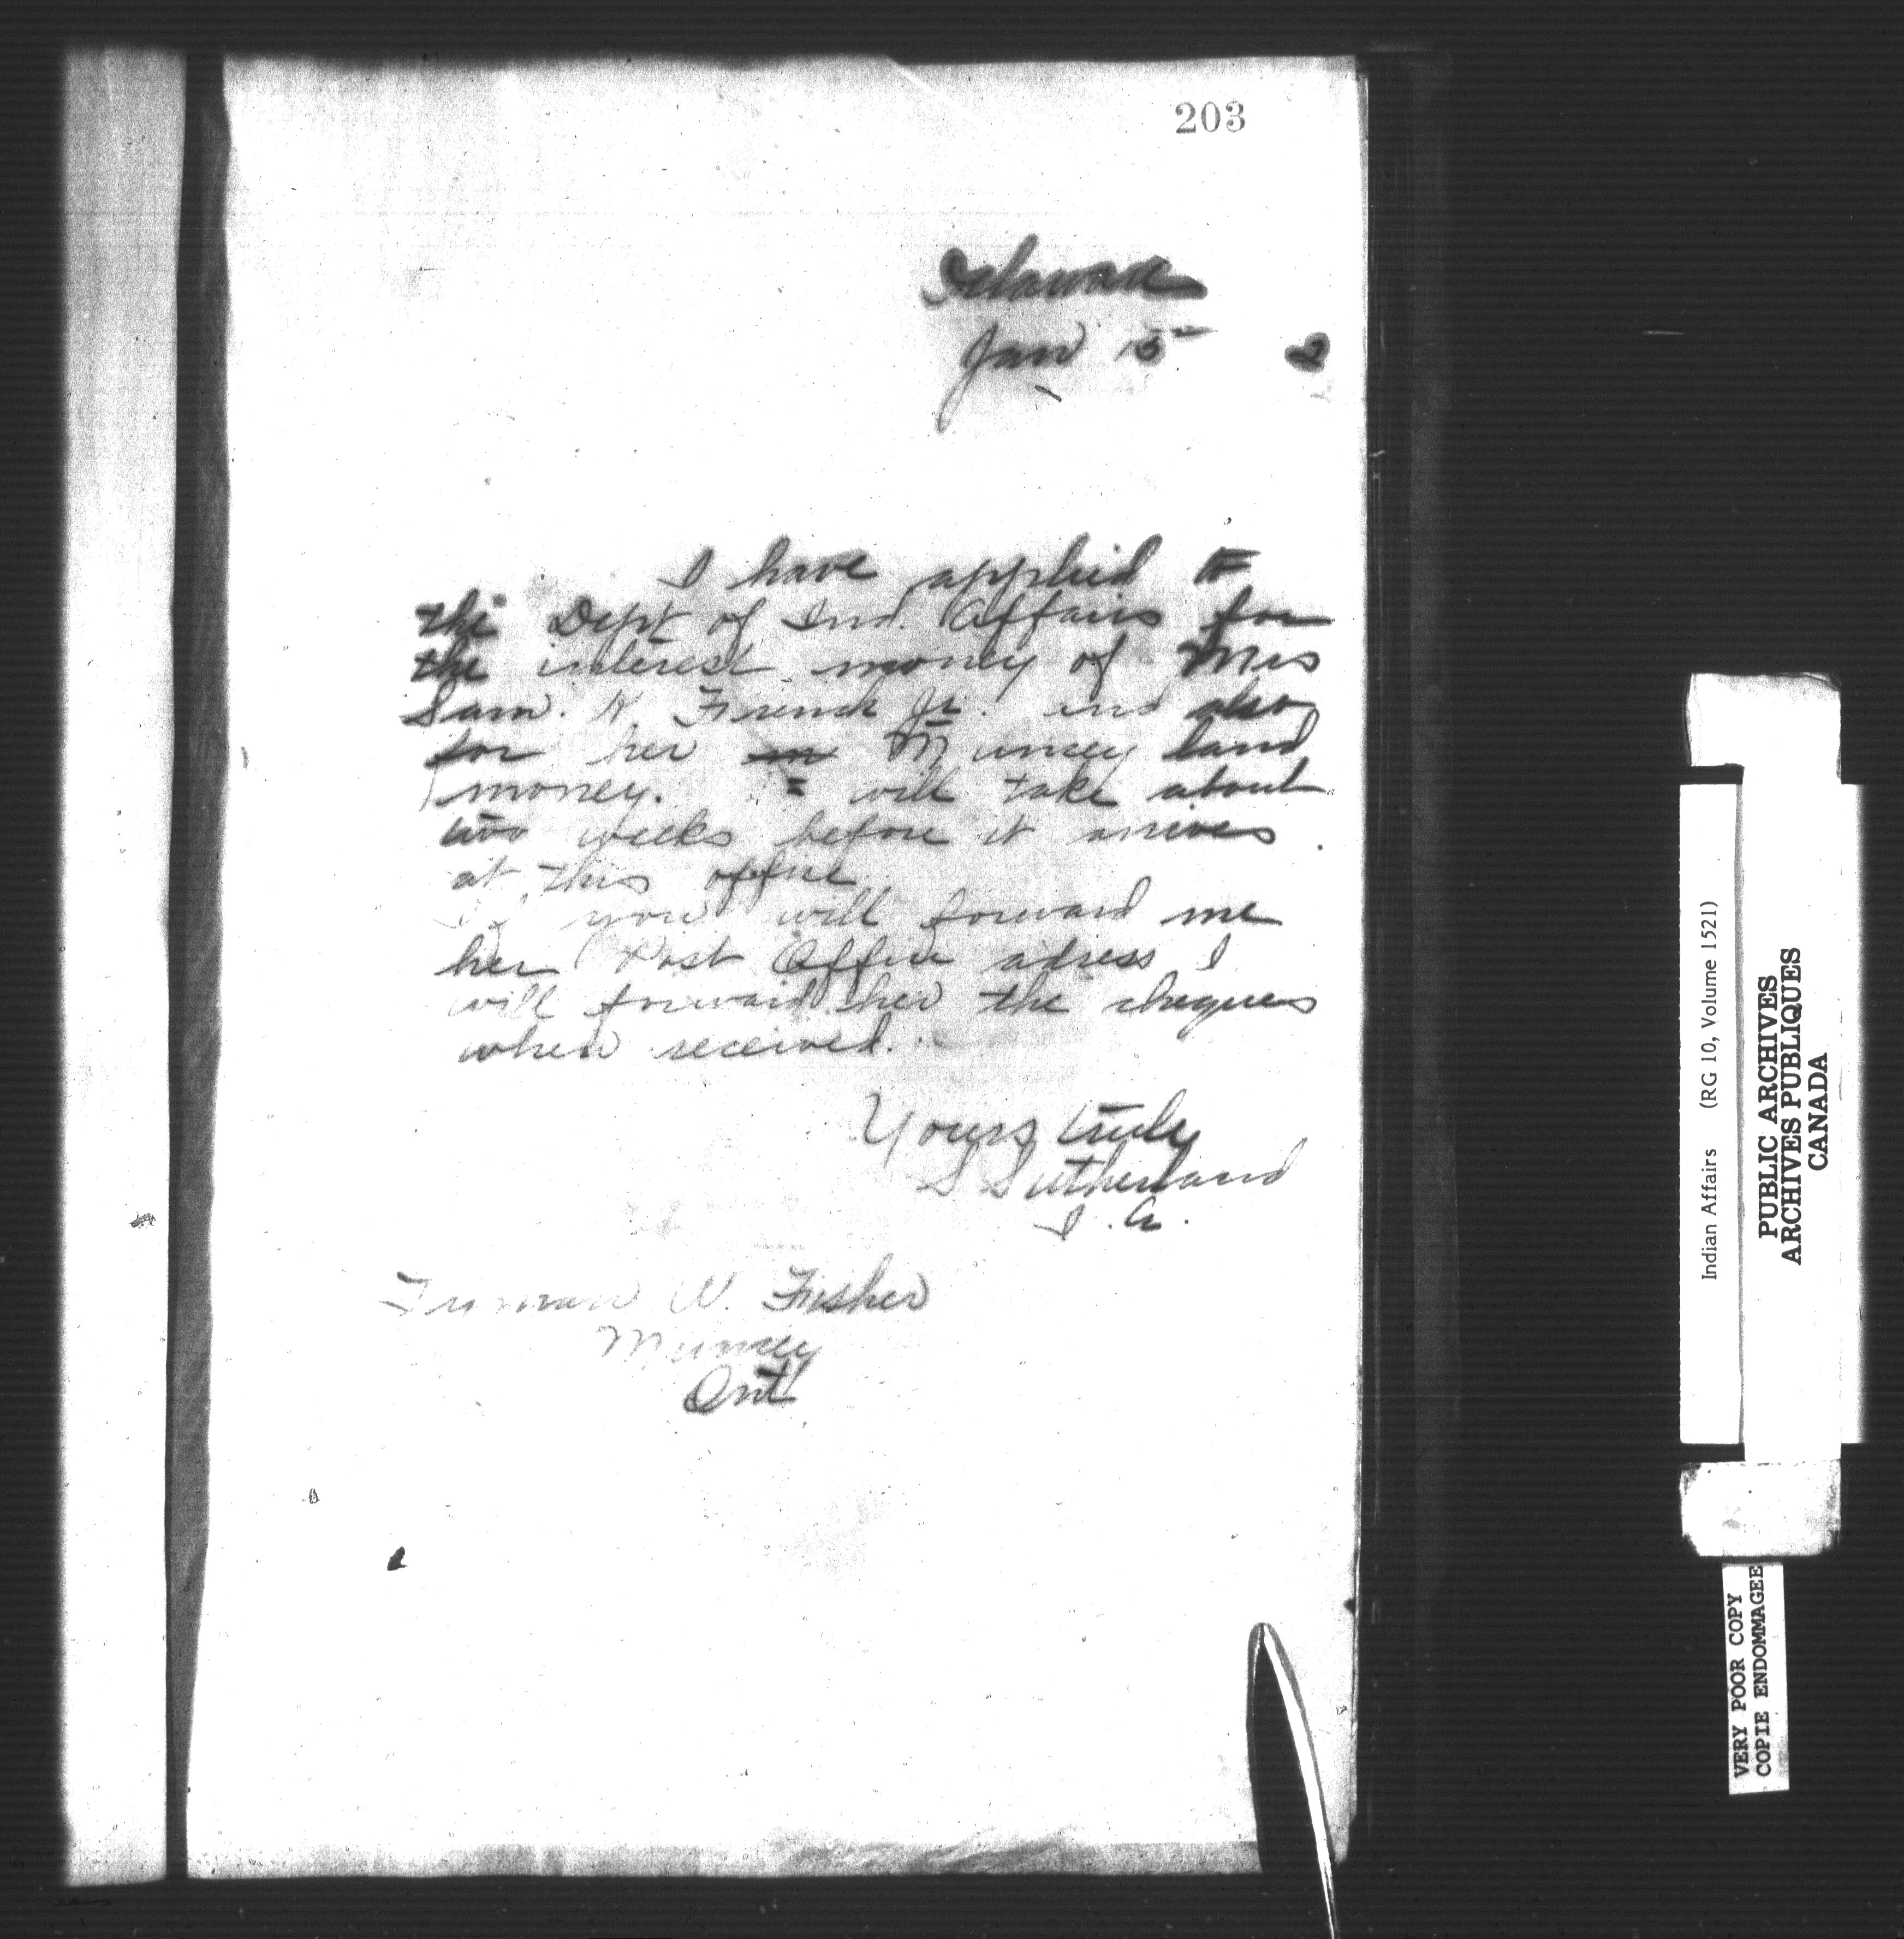 203
Delaware
Jan 15 2
I have applied to
the Dept of Ind. Affairs for
the interest money of Mrs
Sam. K. French Jr. and also
for her Muncey land
money. will take about
two weeks before it arrives
at this office
If you will forward me
her Post Office adress I
will forward her the cheques
when received.
Yours truly
S Sutherland
I. A.
Truman W. Fisher
Muncey
Ont
Indian Affairs (RG 10, Volume 1521)
PUBLIC ARCHIVES
ARCHIVES PUBLIQUES
CANADA
VERY POOR COPY
COPIE ENDOMMAGEE